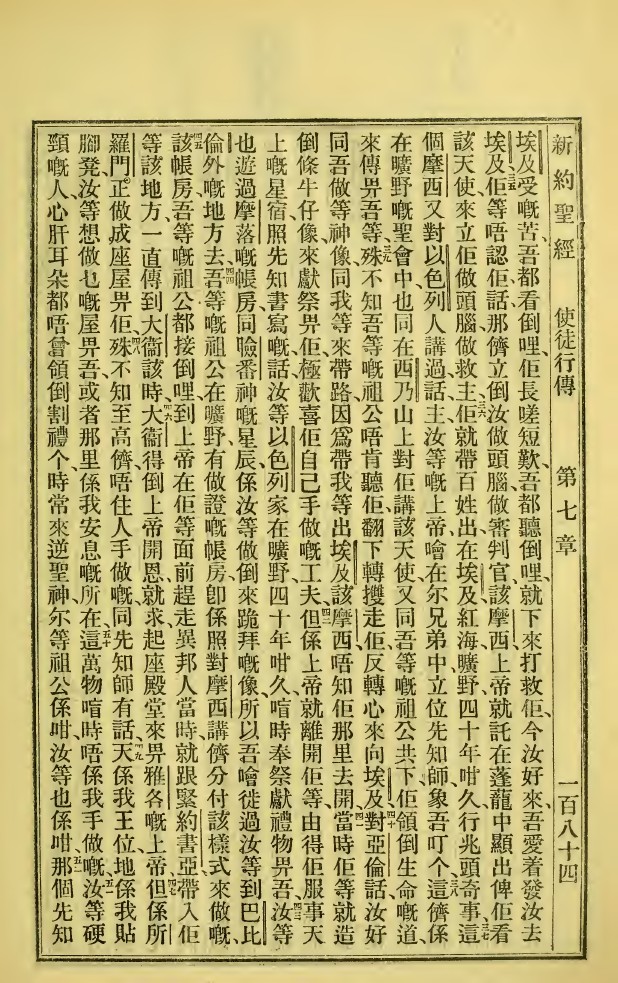 新約聖經 使徒行傳 第七章 一百八十四
埃及受嘅苦、吾都看倒哩、佢長嗟短歎、吾都聽倒哩、就下來打救佢、今汝好來、吾愛着發汝去
埃及、三五佢等唔認佢、話、那儕立倒汝做頭腦、做審判官、該摩西、上帝就託在蓬蘢中顯出俾佢看
該天使、來立佢做頭腦、做救主、三六佢就帶百姓出在埃及、紅海、曠野、四十年咁久行兆頭奇事、三七這
個摩西、又對以色列人講過話、主汝等嘅上帝、噲在尔兄弟中立位先知師、象吾叮个、三八這儕係
在曠野嘅聖會中、也同在西乃山上對佢講該天使、又同吾等嘅祖公共下、佢領倒生命嘅道、
來傳畀吾等、三九殊不知吾等嘅祖公唔肯聽佢、翻下轉㩳走佢、反轉心來向埃及、四十對亞倫話、汝好
同吾做等神像、同我等來帶路、因爲帶我等出埃及該摩西、唔知佢那里去開、四一當時佢等就造
倒條牛仔像、來獻祭畀佢、極歡喜佢自己手做嘅工夫、四二但係上帝就離開佢等、由得佢服事天
上嘅星宿、照先知書寫嘅話、汝等以色列家、在曠野四十年咁久、喧時奉祭獻禮物畀吾、四三汝等
也遊過摩落嘅帳房、同㘔番神嘅星辰、係汝等做倒來跪拜嘅像、所以吾噲徙過汝等到巴比
倫外嘅地方去、四四吾等嘅祖公在曠野有做證嘅帳房、卽係照對摩西講儕分付、該樣式來做嘅、
四五該帳房吾等嘅祖公都接倒哩、到上帝在佢等面前趕走異邦人當時、就跟緊約書亞帶入佢
等該地方、一直傳到大衞該時、四六大衞得倒上帝開恩、就求起座殿堂來畀雅各嘅上帝、四七但係所
羅門正做成座屋畀佢、四八殊不知至高儕唔住人手做嘅、同先知師有話、四九天係我王位、地係我貼
腳凳、汝等想做乜嘅屋畀吾、或者那里係我安息嘅所在、五十這萬物喧時唔係我手做嘅、五一汝等硬
頸嘅人、心肝耳朵都唔曾領倒割禮个、時常來逆聖神、尔等祖公係咁、汝等也係咁、五二那個先知